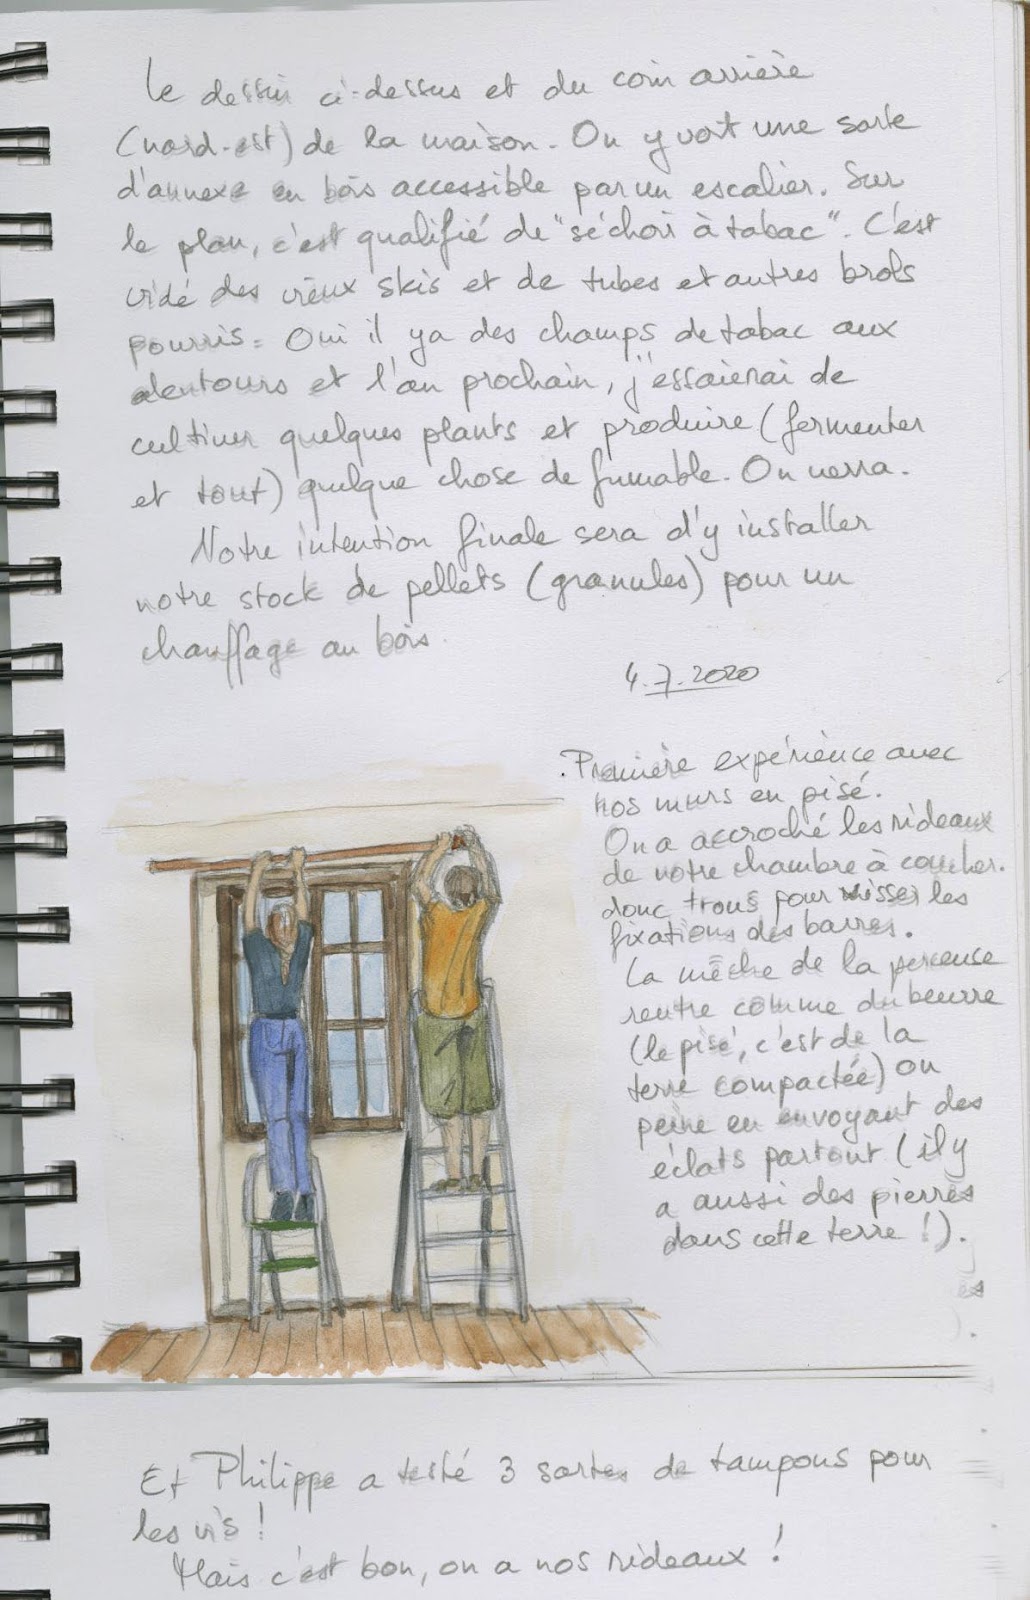 Le dessin ci-dessus et du coin arrière
(nord-est) de la maison. On y voit une sorte
d'annexe en bois accessible par un escalier. Sur
le plan, c'est qualifié de "séchoir à tabac". C'est
vidé des vieux skis et de tubes et autres brols
pourris. Oui il y a des champs de tabac aux
alentours et l'an prochain, j'essaierai de
cultiver quelques plants et produire (fermenter
et tout) quelque chose de fumable. On verra.
Notre intention finale sera d'y installer
notre stock de pellets (granules) pour un
chauffage au bois.
4.7.2020
. Première expérience avec
nos murs en pisé.
On a accroché les rideaux
de notre chambre à coucher.
donc trous pour visser les
fixations des barres.
La mèche de la perceuse
rentre comme du beurre
(le pisé, c'est de la
terre compactée) ou
peine en envoyant des
éclats partout (il y
a aussi des pierres
dans cette terre !).
es
).
Et Philippe a testé 3 sortes de tampons pour
les vis !
Mais c'est bon, on a nos rideaux !